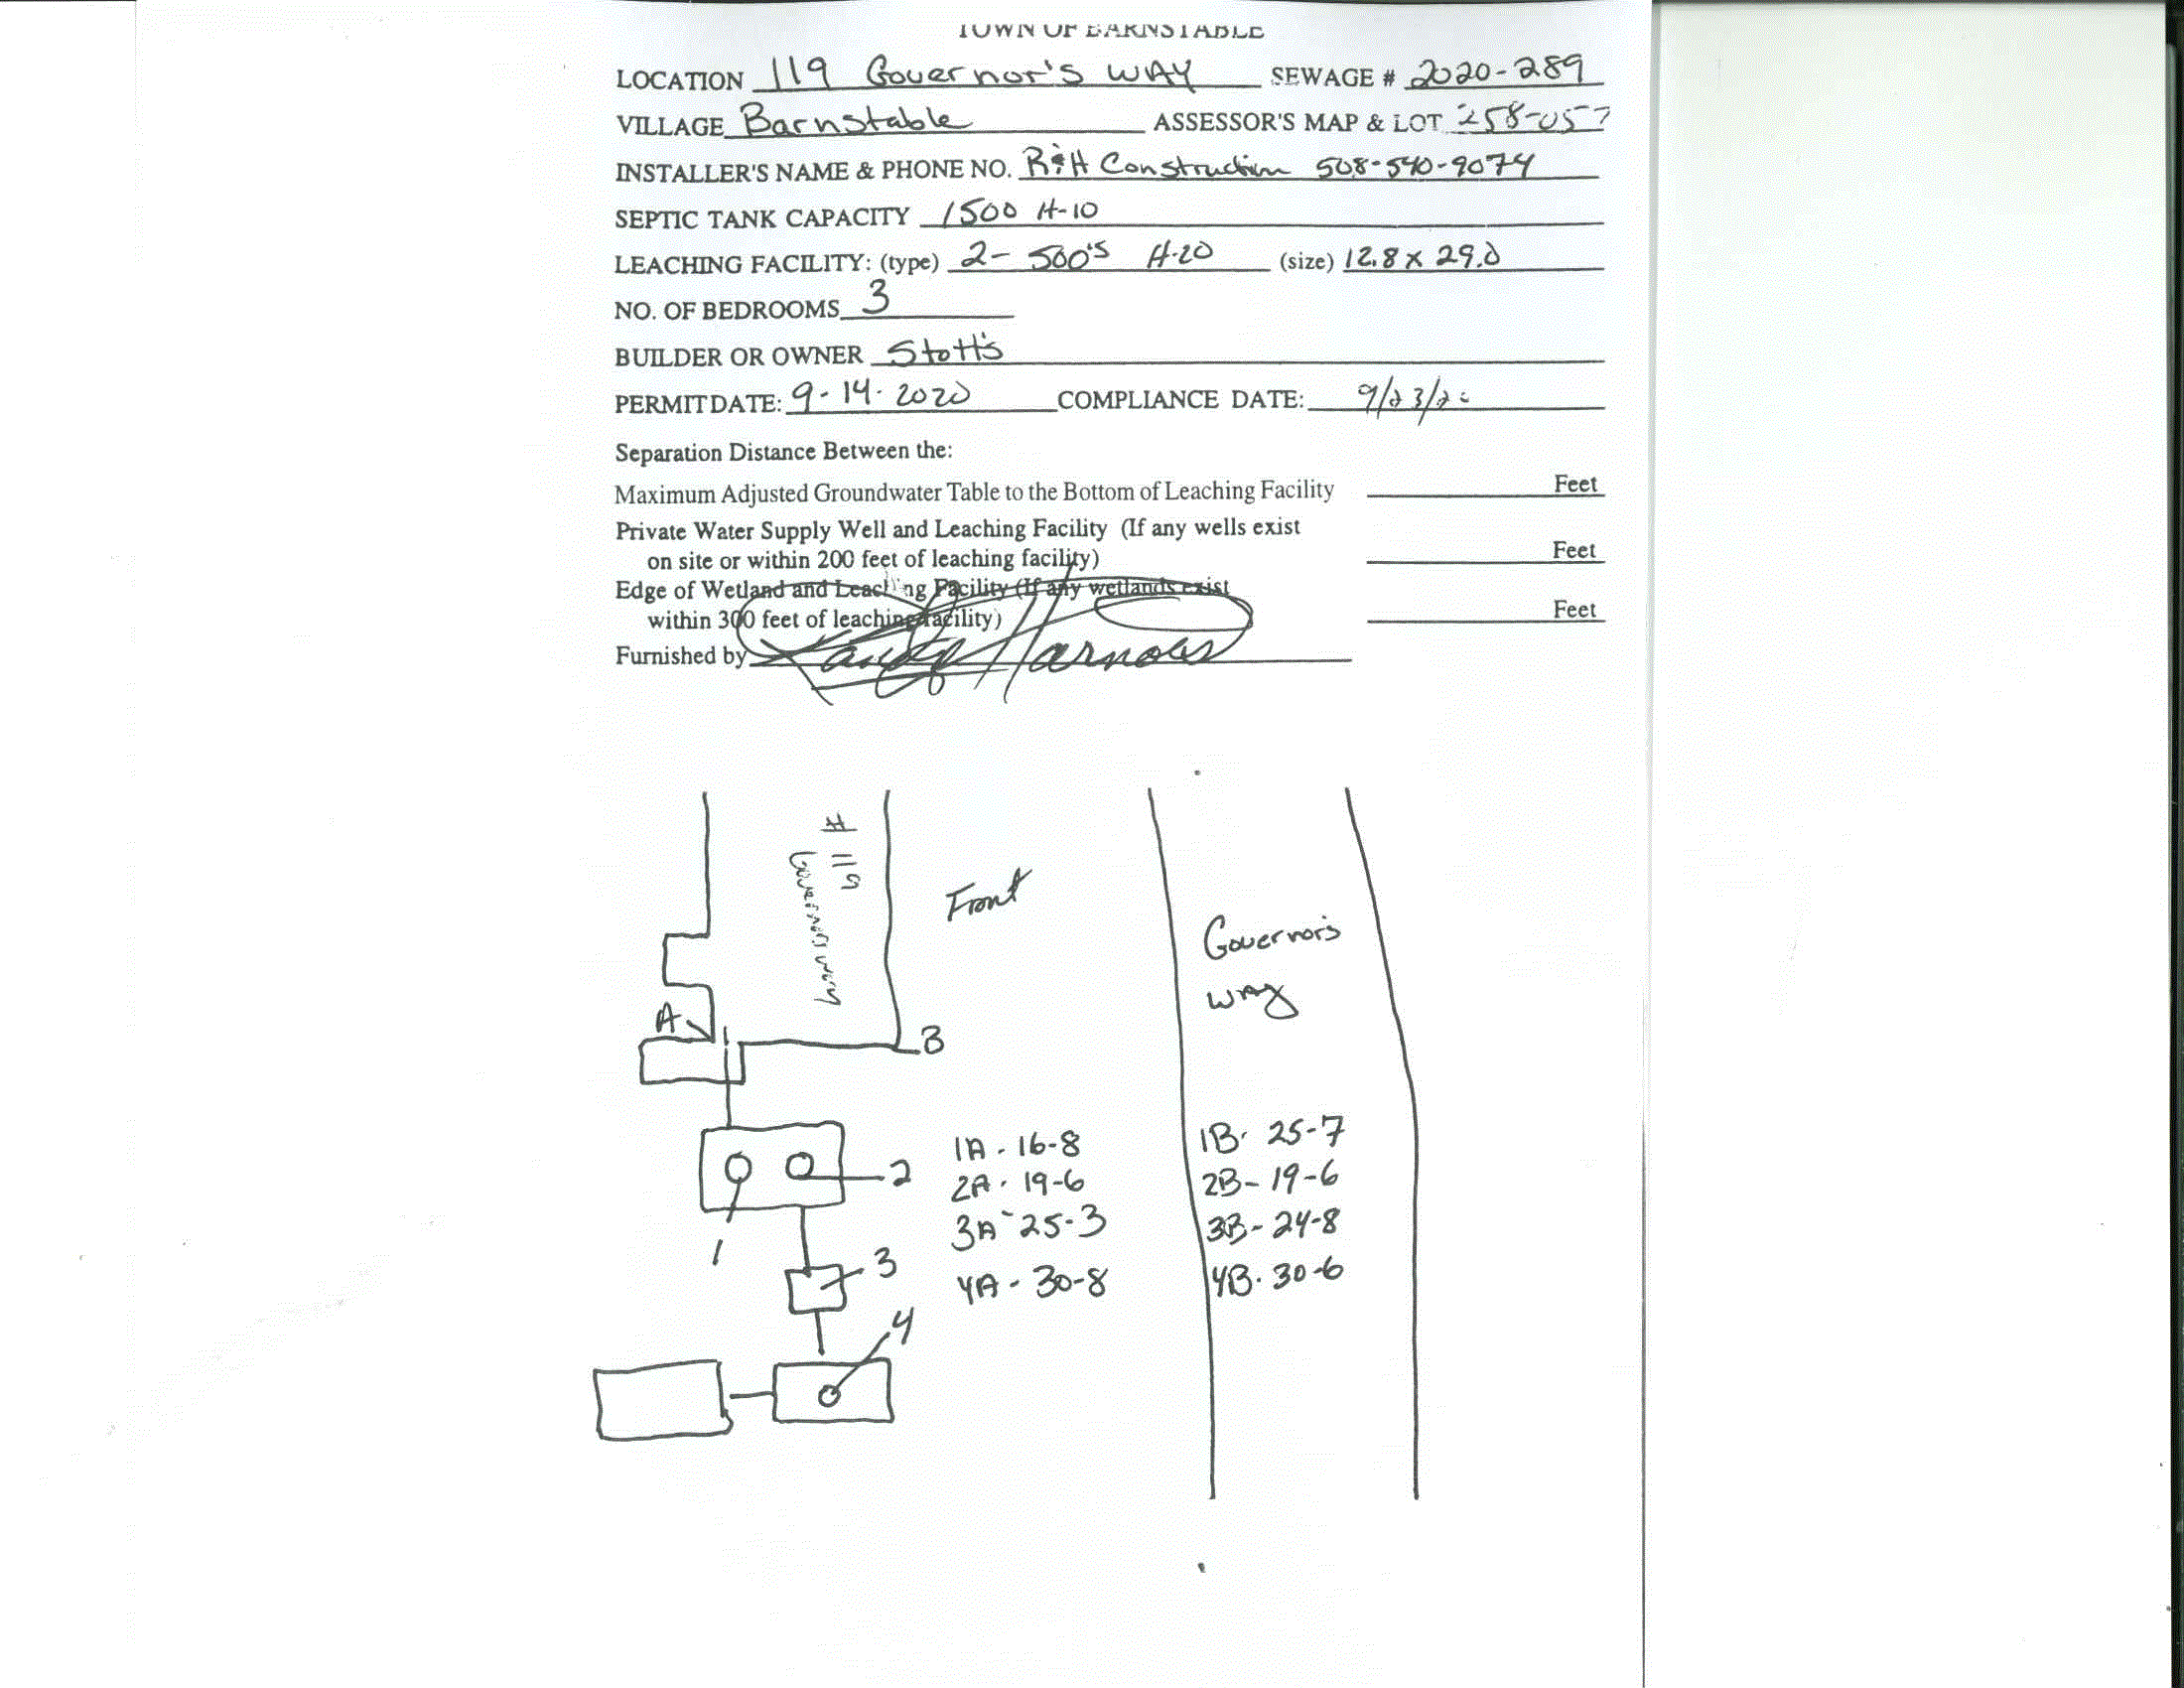 TOWN OF BARNSTABLE
LOCATION 119 Governor's WAY SEWAGE # 2020-289
VILLAGE Barnstable ASSESSOR'S MAP & LOT 258-057
INSTALLER'S NAME & PHONE NO. R&H Construction 508-540-9074
SEPTIC TANK CAPACITY 1500 H-10
LEACHING FACILITY: (type) 2- 500's H-20 (size) 12.8 x 29.0
NO. OF BEDROOMS 3
BUILDER OR OWNER Stott's
PERMIT DATE: 9-14-2020 COMPLIANCE DATE: 9/23/20
Separation Distance Between the:
Maximum Adjusted Groundwater Table to the Bottom of Leaching Facility Feet
Private Water Supply Well and Leaching Facility (If any wells exist
on site or within 200 feet of leaching facility) Feet
Edge of Wetland and Leaching Facility (If any wetlands exist
within 300 feet of leaching facility) Feet
Furnished by
# 119
Governor's way
Front
Governor's
way
A
B
1A - 16-8 1B- 25-7
2
2A - 19-6 2B- 19-6
3A - 25-3 3B- 24-8
1
3
4A - 30-8 4B- 30-6
4